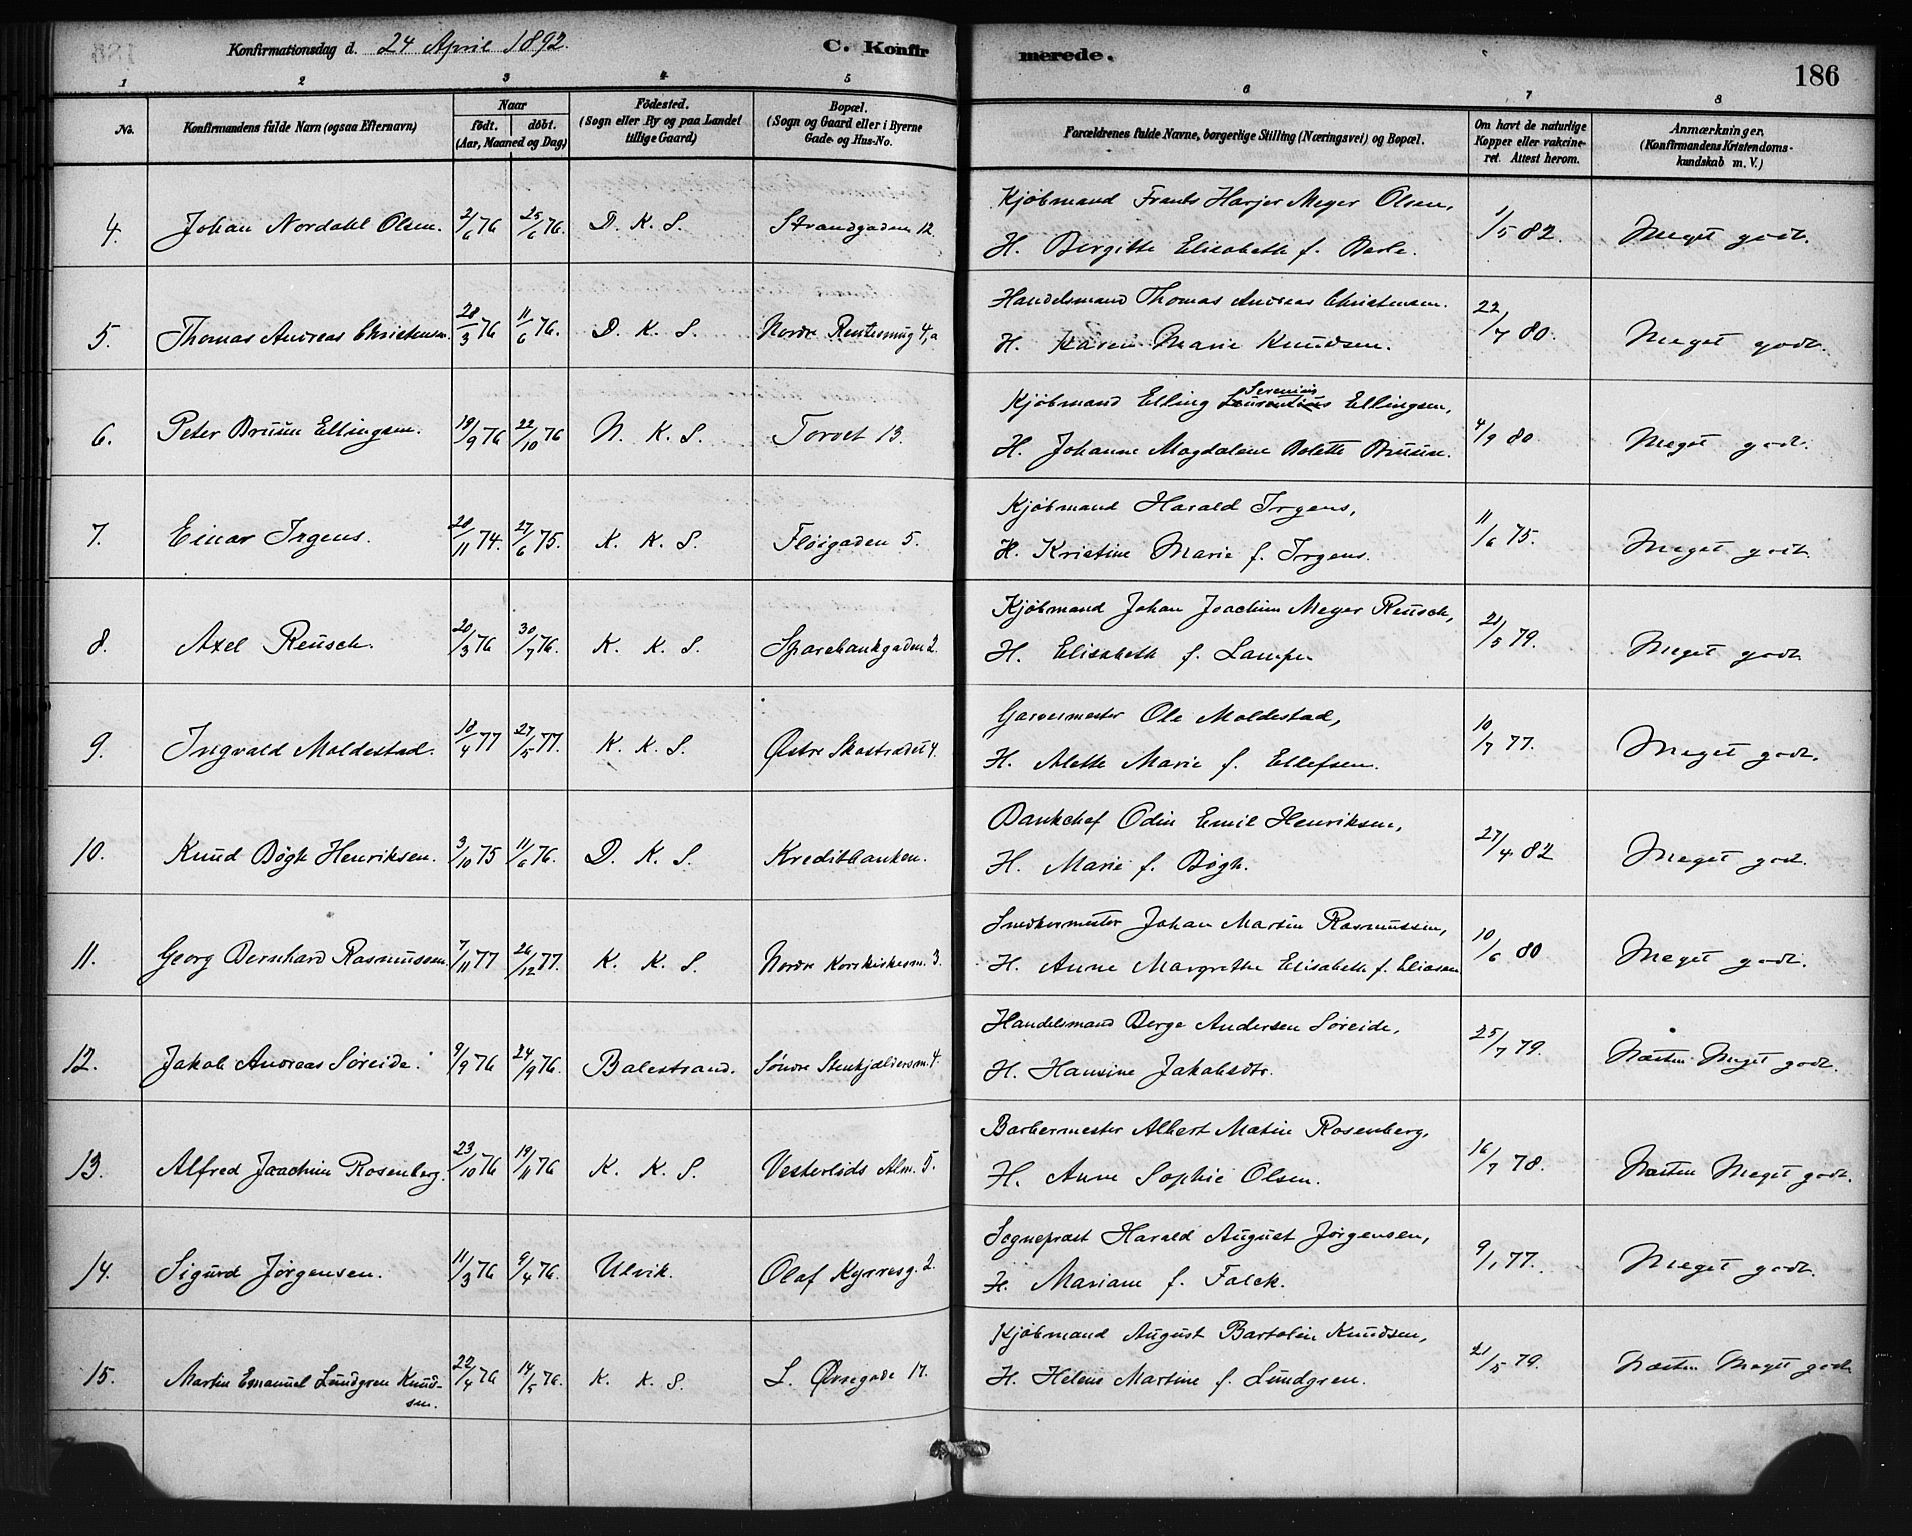 Konfirmationsdag d. 24 April 1892. C. Konfirmerede. 186
1 2 3 4 5 6 7 8
No. Konfirmandens fulde Navn (ogsaa Efternavn) Naar født. døbt. (Aar, Maaned og Dag) Fødested. (Sogn eller By og paa Landet tillige Gaard) Bopæl. (Sogn og Gaard eller i Byerne Gade- og Hus-No. Forældrenes fulde Navne, borgerlige Stilling (Næringsvei) og Bopæl. Om havt de naturlige Kopper eller vakcineret. Attest herom. Anmærkninger. (Konfirmandens Kristendomskundskab m. V.)
Kjøbmand Frants Harjer Meyer Olsen,
4. Johan Nordahl Olsen. 2/6 76 25/6 76. D. K. S. Strandgaden 12 1/5 82. Meget godt.
H. Bergitte Elisabeth f. Berle.
Handelsmand Thomas Andreas Christensen.
5. Thomas Andreas Christensen 28/3 76 11/6 76. D. K. S. Nordre 4,a 22/7 80. Meget godt.
H. Karen Marie Knudsen.
Kjøbmand Elling Severinius Ellingsen,
6. Peter Bruun Ellingsen. 19/9 76 22/10 76 N. K. S. Torvet 13. 4/9 80. Meget godt.
H. Johanne Magdalene Bolette Bruun.
Kjøbmand Harald Irgens,
7. Einar Irgens. 28/11 74. 27/6 75. K. K. S. Fløigaden 5. 11/6 75. Meget godt.
H. Kristine Marie f. Irgens.
Kjøbmand Johan Joachim Meyer Reusch,
8. Axel Reusch. 20/3 76 30/7 76. K. K. S. Sparebankgaden 2. 21/5 79. Meget godt
H. Elisabeth f. Lampe
Garvermester Ole Moldestad,
9. Ingvald Moldestad. 18/4 77 27/5 77. K. K. S. Østre Skostrædet 4. 10/7 77. Meget godt.
H. Alette Marie f. Ellefsen.
Bankchef Odin Emil Henriksen,
10. Knud Bøgh Henriksen. 3/10 75 11/6 76. D. K. S. Kreditbanken. 27/4 82 Meget godt.
H. Marie f. Bøgh.
Snedkermester Johan Martin Rasmussen,
11. Georg Bernhard Rasmussen. 7/11 77 26/12 77. K. K. S. Nordre Korskirkesm. 3. 10/6 80 Meget godt.
H. Anne Margrethe Elisabeth f. Eliasen
Handelsmand Berge Andersen Søreide,
12. Jakob Andreas Søreide. 9/9 76 24/9 76. Balestrand. Søndre Stenkjeldersm. 4. 25/7 79. Næsten Meget godt.
H. Hansine Jakobsdtr.
Barbermester Albert Matin Rosenberg,
13. Alfred Joachim Rosenberg. 23/10 76 19/11 76 K. K. S. Vesterlids Alm. 5. 16/7 78. Næsten Meget godt.
H. Anne Sophie Olsen.
Sognepræst Harald August Jørgensen,
14. Sigurd Jørgensen. 11/3 76 9/4 76. Ulvik. Olaf Kyrresg. 2. 9/1 77. Meget godt.
H. Mariane f. Falck.
Kjøbmand August Bartolin Knudsen,
15. Martin Emanuel Lundgren Knud- 22/4 76 14/5 76. K. K. S. L. Øvregade 17. 21/5 79. Næsten Meget godt
sen.
H. Helene Martine f. Lundgren.